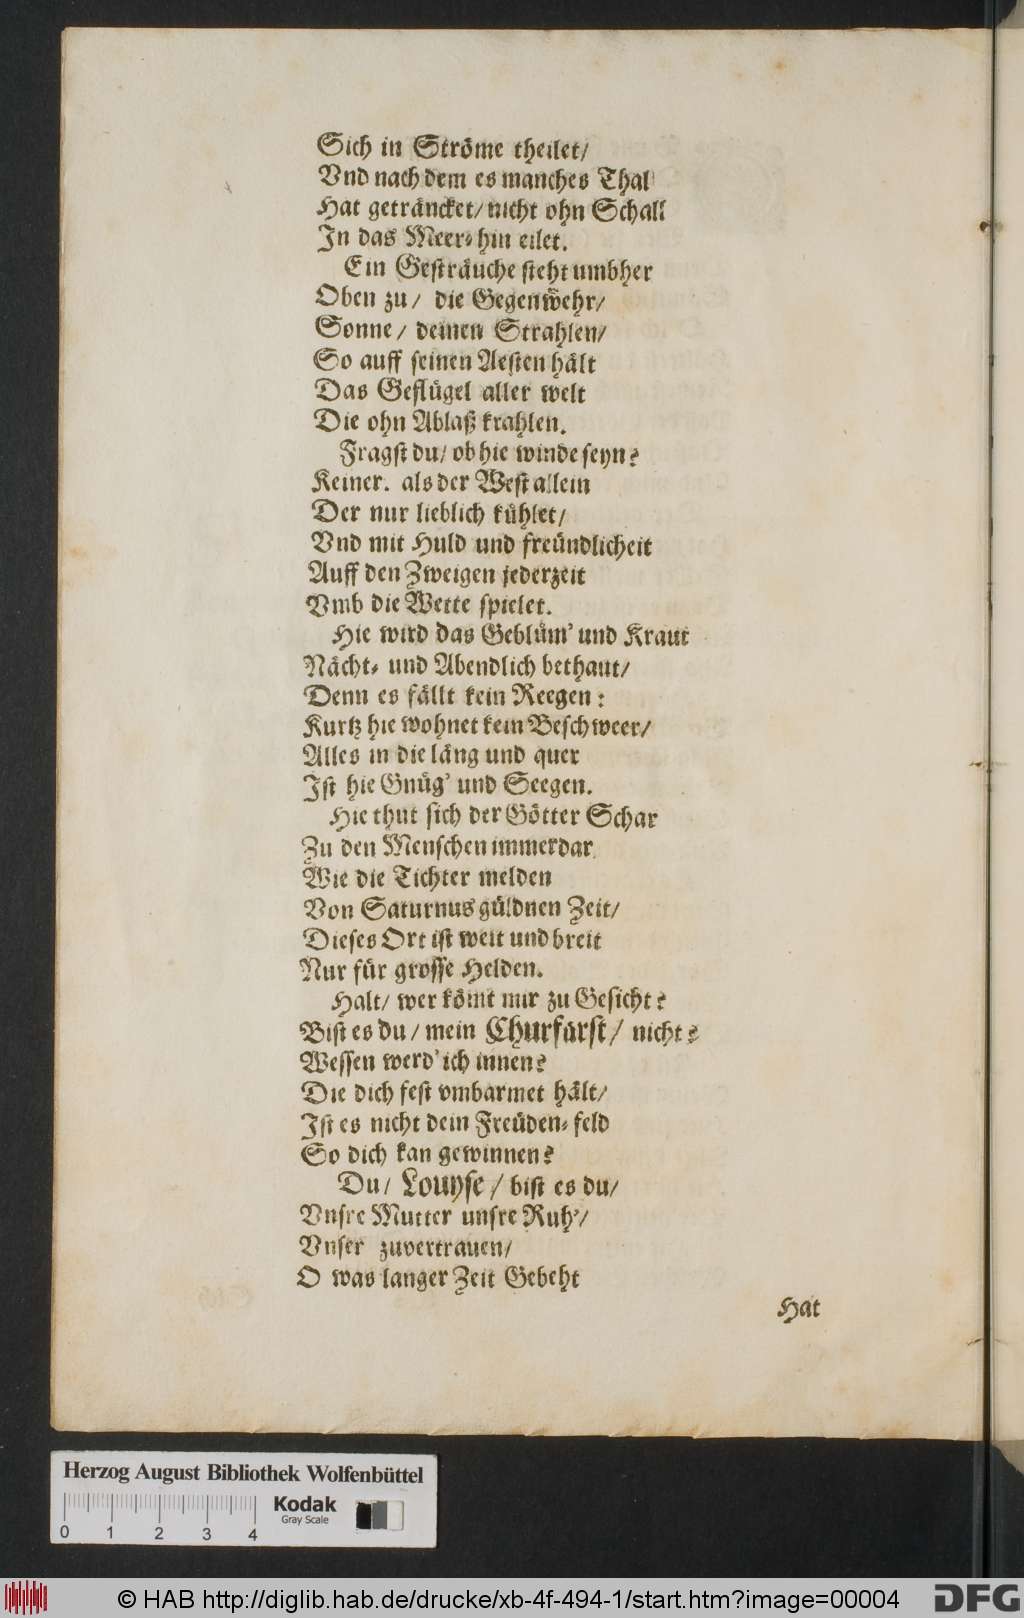 Sich in Ströme theilet/
Vnd nach dem es manches Thal
Hat geträncket/ nicht ohn Schall
In das Meer-hin eilet.
Ein Gesträuche steht umbher
Oben zu/ die Gegenwehr/
Sonne/ deinen Strahlen/
So auff seinen Aesten hält
Das Geflügel aller welt
Die ohn Ablaß krahlen.
Fragst du/ ob hie winde seyn?
Keiner. als der West allein
Der nur lieblich kühlet/
Vnd mit Huld und freündlicheit
Auff den Zweigen jederzeit
Vmb die Wette spielet.
Hie wird das Geblüm' und Kraut
Nächt- und Abendlich bethaut/
Denn es fällt kein Reegen:
Kurtz hie wohnet kein Beschweer/
Alles in die läng und quer
Ist hie Gnüg' und Seegen.
Hie thut sich der Götter Schar
Zu den Menschen immerdar
Wie die Tichter melden
Von Saturnus güldnen Zeit/
Dieses Ort ist weit und breit
Nur für grosse Helden.
Halt/ wer kömt mir zu Gesicht?
Bist es du/ mein Churfürst/ nicht?
Wessen werd' ich innen?
Die dich fest vmbarmet hält/
Ist es nicht dein Freüden-feld
So dich kan gewinnen?
Du/ Louyse/ bist es du/
Vnsre Mutter unsre Ruh'/
Vnser zuvertrauen/
O was langer Zeit Gebeht
Hat
Herzog August Bibliothek Wolfenbüttel
0 1 2 3 4
Kodak
Gray Scale
© HAB http://diglib.hab.de/drucke/xb-4f-494-1/start.htm?image=00004
DFG